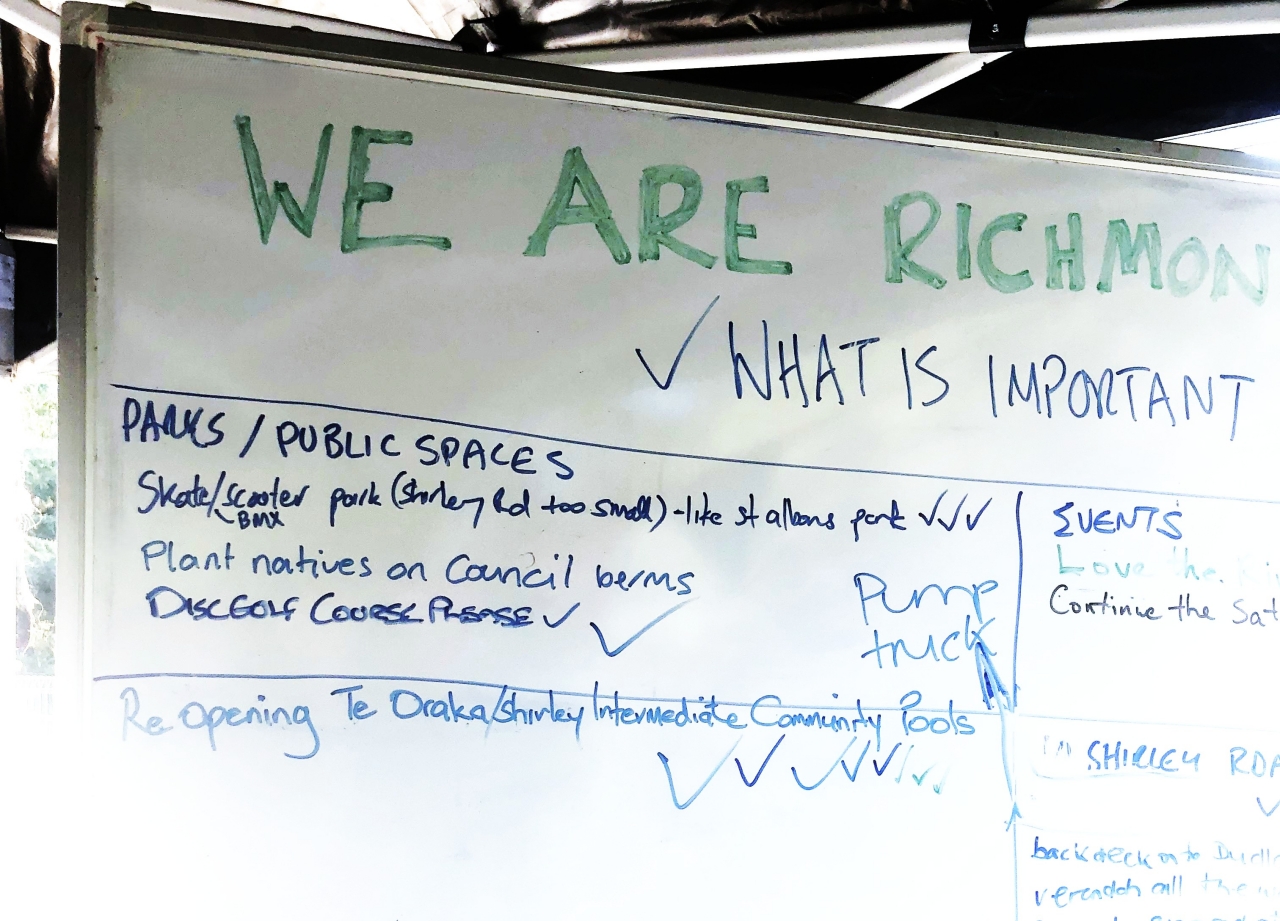 WE ARE RICHMON
✓ WHAT IS IMPORTANT
PARKS / PUBLIC SPACES
Skate/scooter park (Shirley Rd too small) - like st albans park ✓✓✓
BMX
Plant natives on Council berms
DISC GOLF COURSE PLEASE ✓ ✓
Pump
truck
Re Opening Te Oraka/Shirley Intermediate Community Pools
✓ ✓ ✓ ✓ ✓ ✓ ✓ ✓
EVENTS
Love the
Continue the Sat
SHIRLEY ROA
✓
back deck on to
all the